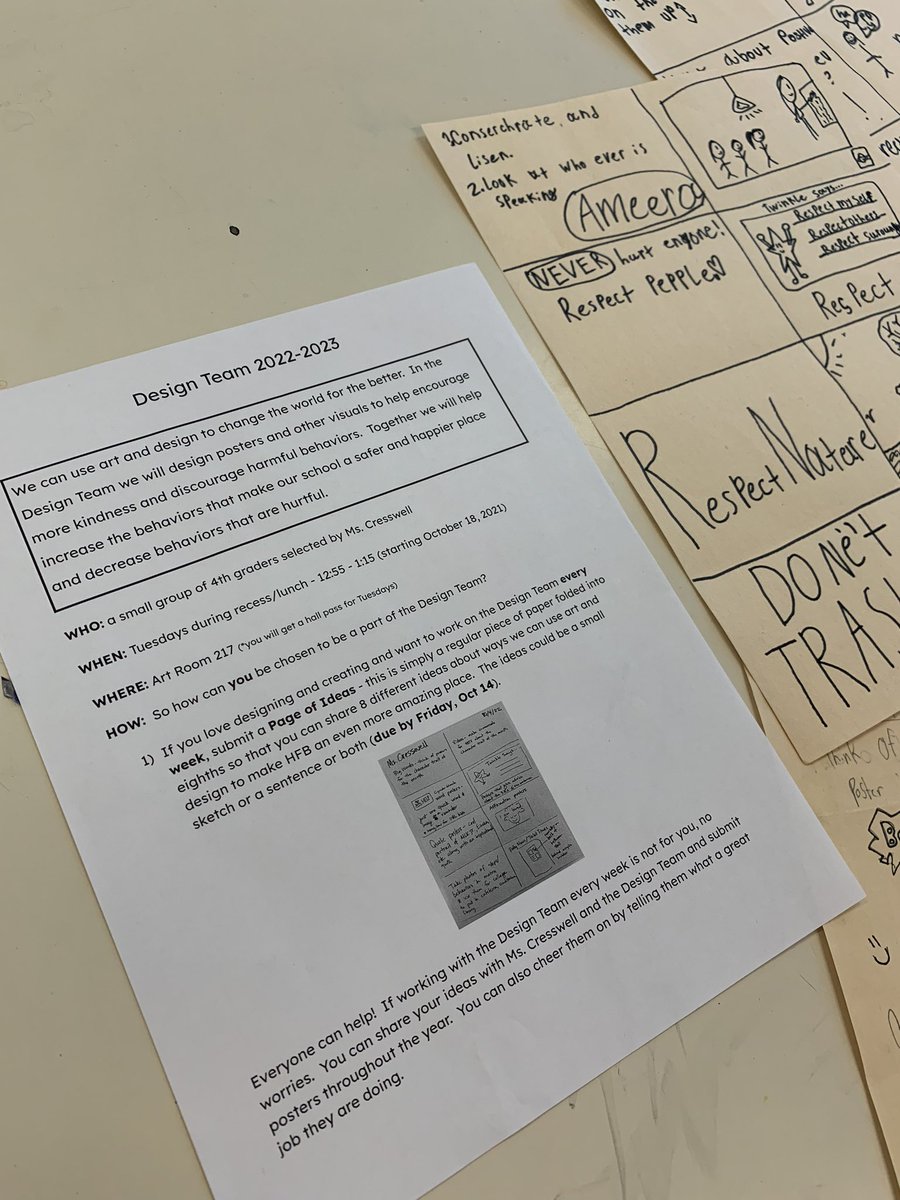 Design Team 2022-2023
We can use art and design to change the world for the better. In the
Design Team we will design posters and other visuals to help encourage
more kindness and discourage harmful behaviors. Together we will help
increase the behaviors that make our school a safer and happier place
and decrease behaviors that are hurtful.
WHO: a small group of 4th graders selected by Ms. Cresswell
WHEN: Tuesdays during recess/lunch - 12:55 - 1:15 (starting October 18, 2021)
WHERE: Art Room 217 (*you will get a hall pass for Tuesdays)
HOW: So how can you be chosen to be a part of the Design Team?
1) If you love designing and creating and want to work on the Design Team every
week, submit a Page of Ideas - this is simply a regular piece of paper folded into
eighths so that you can share 8 different ideas about ways we can use art and
design to make HFB an even more amazing place. The ideas could be a small
sketch or a sentence or both (due by Friday, Oct 14).
Ms. Cresswell
Everyone can help! If working with the Design Team every week is not for you, no
worries. You can share your ideas with Ms. Cresswell and the Design Team and submit
posters throughout the year. You can also cheer them on by telling them what a great
job they are doing.
on the
them up
about
1Conserchrate, and
lisen.
2.Look at who ever is
speaking
AMeera
NEVER hurt enyone!
Respect Pepple
Twinkle says...
Respect my self
Respect others
Respect
Respect
Respect Naturer
DONet
Thinks of
Poster